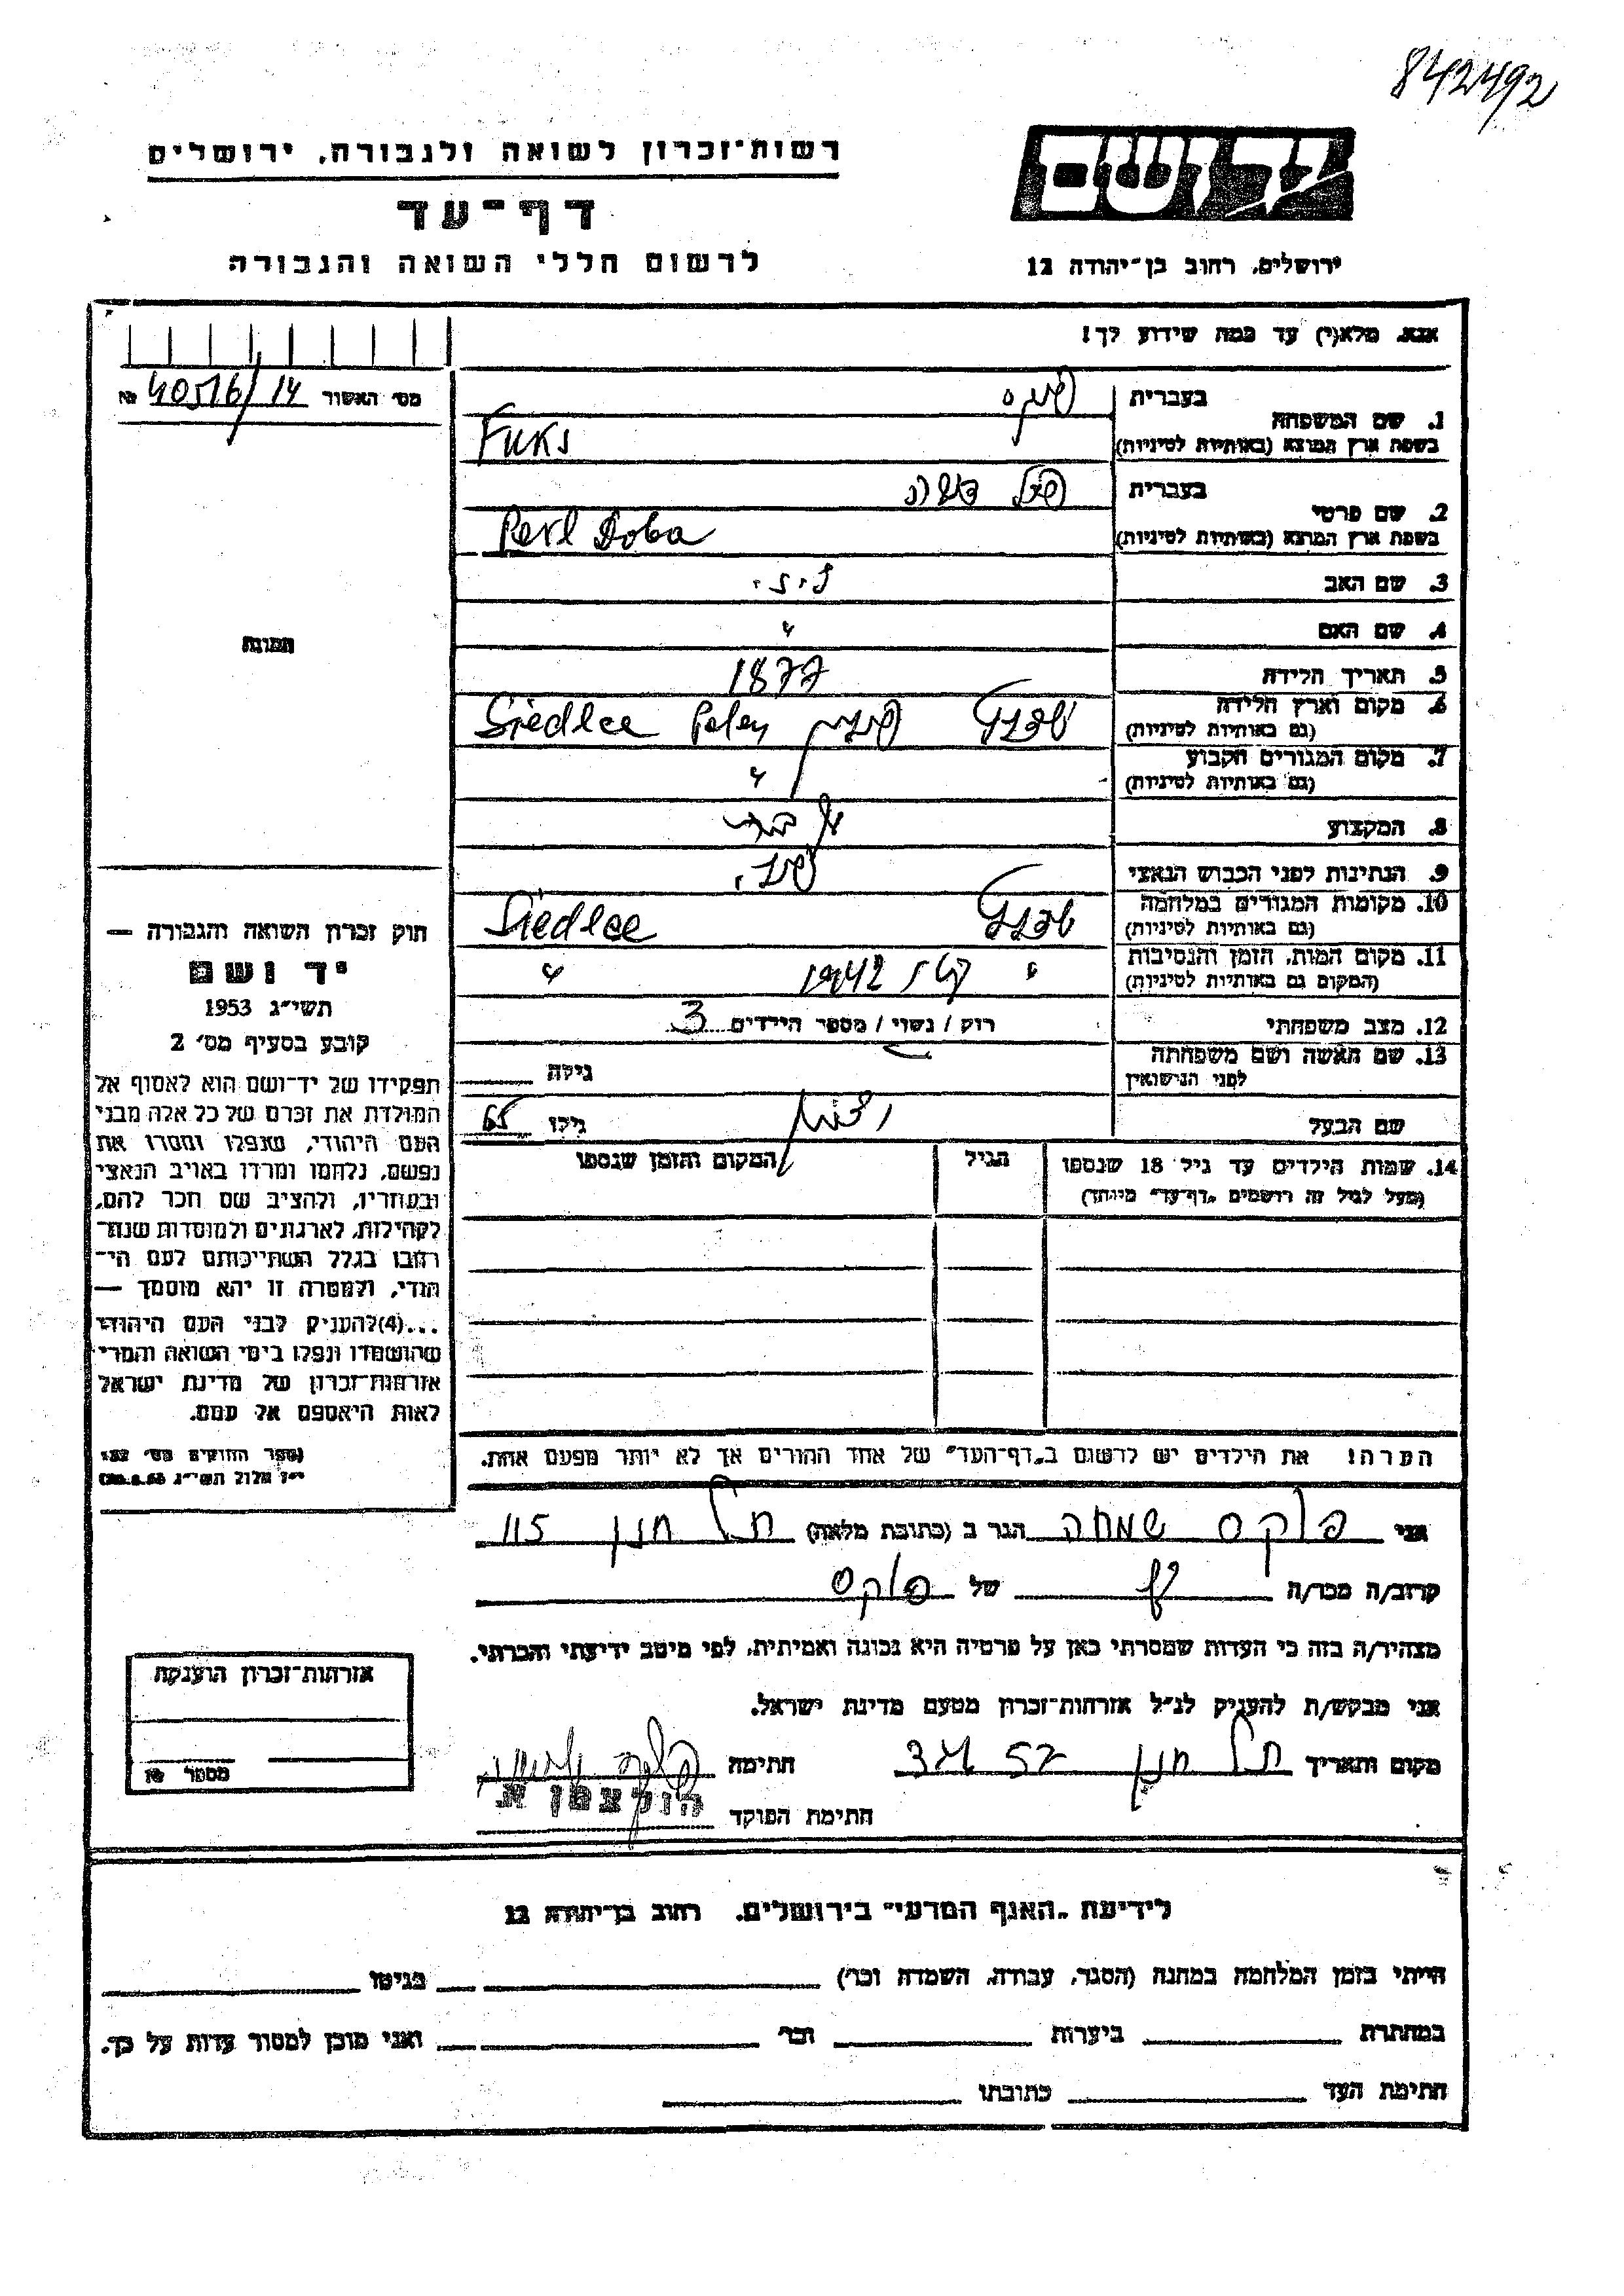 842492
רשות־זכרון לשואה ולגבורה, ירושלים
יד ושם
דף־עד
לרשום חללי השואה והגבורה
ירושלים, רחוב בן־יהודה 12
אנא, מלא(י) עד כמה שידוע לך!
מס׳ האשור 40516/14 №
1. שם המשפחה
בעברית פוקס
בשפת ארץ המוצא (באותיות לטיניות) Fuks
2. שם פרטי
בעברית פרל
בשפת ארץ המוצא (באותיות לטיניות) Perl Doba
3. שם האב
4. שם האם "
5. תאריך הלידה 1877
6. מקום וארץ הלידה
(גם באותיות לטיניות) שדלץ פולין Siedlce Polen
7. מקום המגורים הקבוע
(גם באותיות לטיניות) "
8. המקצוע
9. הנתינות לפני הכבוש הנאצי פולני
10. מקומות המגורים במלחמה
(גם באותיות לטיניות) שדלץ Siedlce
11. מקום המות, הזמן והנסיבות
(המקום גם באותיות לטיניות) " 1942 "
12. מצב משפחתי רווק / נשוי / מספר הילדים 3
13. שם האשה ושם משפחתה
לפני הנישואין גילה
שם הבעל גילו 65
14. שמות הילדים עד גיל 18 שנספו
(מעל לגיל זה רושמים „דף־עד״ מיוחד)
הגיל
המקום והזמן שנספו
הערה! את הילדים יש לרשום ב„דף־העד״ של אחד ההורים אך לא יותר מפעם אחת.
תמונה
חוק זכרון השואה והגבורה —
יד ושם
תשי״ג 1953
קובע בסעיף מס׳ 2
תפקידו של יד־ושם הוא לאסוף אל
המולדת את זכרם של כל אלה מבני
העם היהודי, שנפלו ומסרו את
נפשם, נלחמו ומרדו באויב הנאצי
ובעוזריו, ולהציב שם וזכר להם,
לקהילות, לארגונים ולמוסדות שנח־
רבו בגלל השתייכותם לעם הי־
הודי, ולמטרה זו יהא מוסמך —
...(4)להעניק לבני העם היהודי
שהושמדו ונפלו בימי השואה והמרי
אזרחות־זכרון של מדינת ישראל
לאות היאספם אל עמם.
(ספר החוקים מס׳ 132,
י״ז אלול תשי״ג 28.8.53)
אני פוקס שמחה הגר ב (כתובת מלאה) תל חנן 115
קרוב/ה מכר/ה של פוקס
מצהיר/ה בזה כי העדות שמסרתי כאן על פרטיה היא נכונה ואמיתית, לפי מיטב ידיעתי והכרתי.
אני מבקש/ת להעניק לנ״ל אזרחות־זכרון מטעם מדינת ישראל.
מקום ותאריך תל חנן חתימה
חתימת הפוקד הולצמן א
אזרחות־זכרון הוענקה
מספר №
לידיעת „האגף המדעי״ בירושלים, רחוב בן־יהודה 12
הייתי בזמן המלחמה במחנה (הסגר, עבודה, השמדה וכו׳) בגיטו
במחתרת ביערות וכו׳ ואני מוכן למסור עדות על כך.
חתימת העד כתובתו